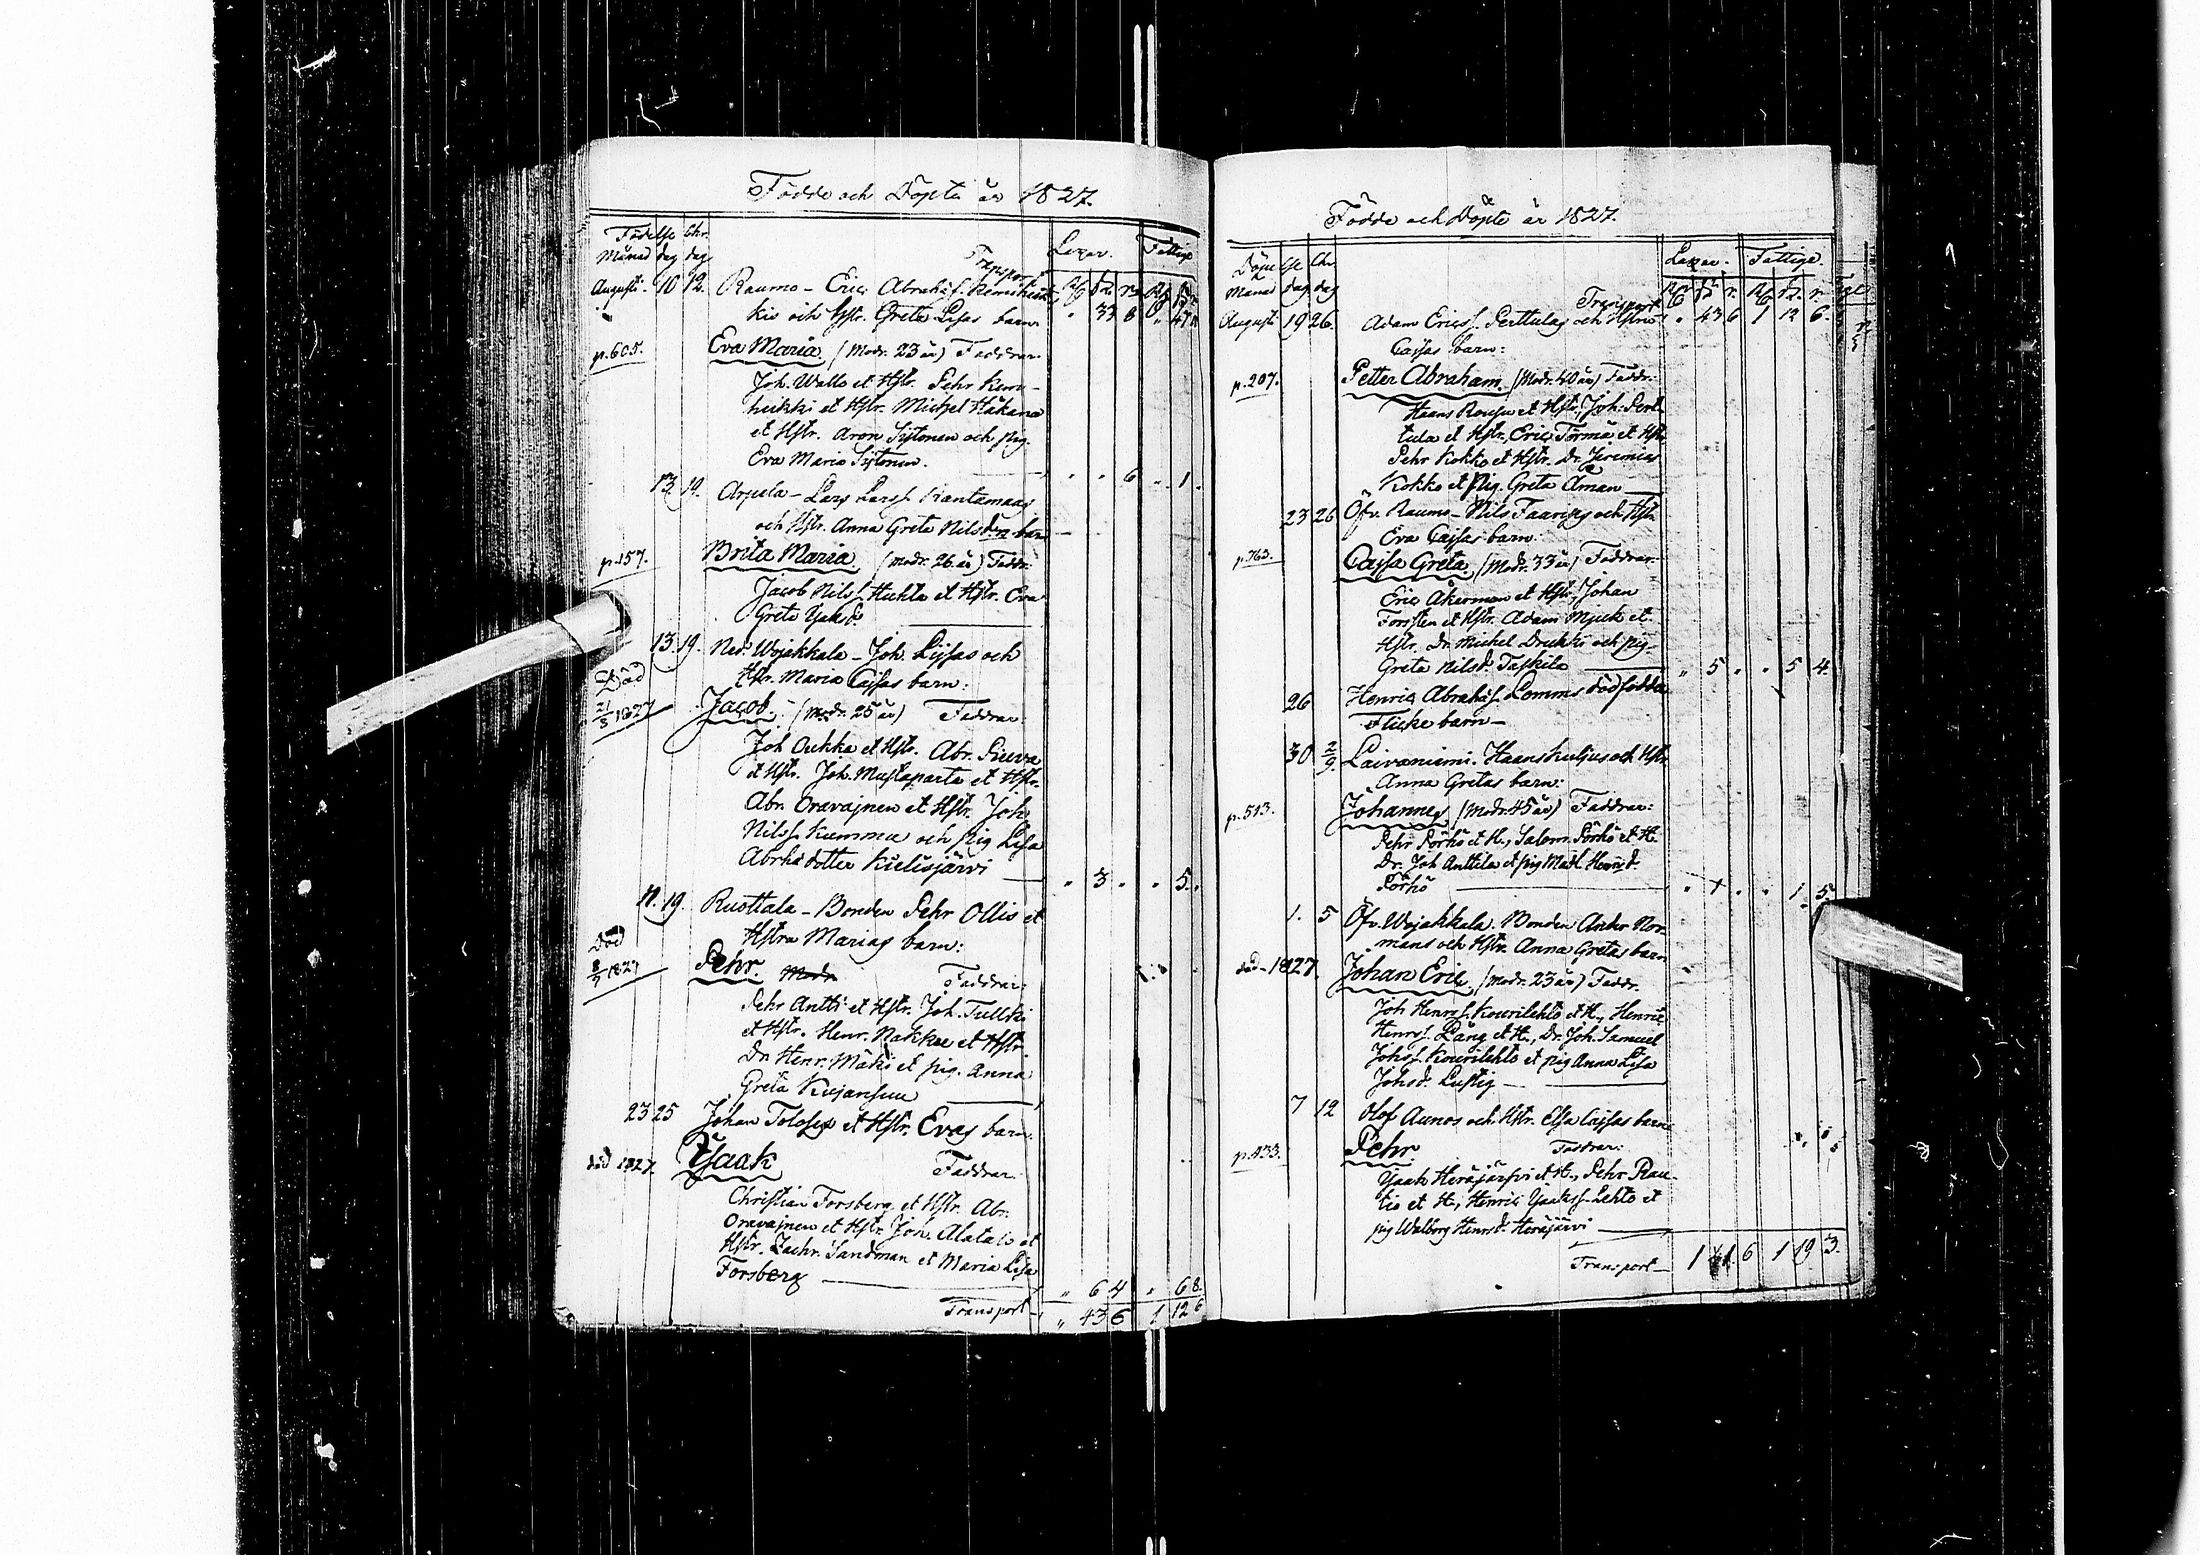 Födde och Döpte år 1827.
Födelse Chr.
Månad dag dag
Lazar. Fattige
Transport
Augusti. 10 12. Raumo - Eric Abrahs.
" 33 8 " 47
kis och Hstr. Greta Lisas barn
p. 605. Eva Maria (Modr. 23 år) Faddrar.
Joh. Wallo et Hstr. Pehr Kem-
heikki et Hstr. Michel Håkana
et Hstr. Aron Sistonen och pig.
Eva Maria Sistonen. " " 6 " 1.
13. 19. Arpela - Lars Larss. Kantamaas
och Hstr. Anna Greta Nilsdrs barn
p. 157. Brita Maria (Modr. 26 år) Faddr:
Jacob Nilss. Huhta et Hstr. Eva
Greta Isaksd.
13. 19. Ned. Wojakkala - Joh. Lissas och
Död Hstr. Maria Cajsas barn:
1827 Jacob. (Modr. 25 år) Faddrar:
Joh. Oukka et Hstr. Abr.
et Hstr. Joh. Mustaparta et Hstr.
Abr. Oravajnen et Hstr. Joh.
Nilss. Kumma och pig Lisa
Abrhsdotter Kielisjärvi " 3 " " 5.
19. Ruottala - Bonden Pehr Ollis et
Död Hstrs Marias barn:
1827 Pehr. Modr. Faddrar:
Pehr Antti et Hstr. Joh. Tullki
et Hstr. Henr. Nakkee et Hstr.
Dr. Henr. Mäki et pig. Anna
Greta Kujansuu
23 25 Johan Tolosas et Hstr. Evas barn.
död 1827. Isaak Faddrar.
Christian Forsberg et Hstr. Abr.
Oravajnen et Hstr. Joh. Alatalo et
Hstr. Zachr. Sandman et Maria Lisa
Forsberg " 6 4 " 6 8.
Transport " 43 6 1 12 6
Födde och Döpte år 1827.
Chr
Månad dag dag
Lazar. Fattige.
Transport
Augusti 19 26. Adam Ericss. Perttulas och Hstrs " 43 6 1 12 6.
Cajsas barn:
p. 207. Petter Abraham (Modr. 40 år) Faddr:
Haans Rousu et Hstr, Joh: Pert
tula et Hstr, Eric Törmä et Hstr
Pehr Kokko et Hstr. Dr. Jeremias
Kokko et Pig. Greta Åman
23 26 Öfv. Raumo - Nils Taaries och Hstr.
Eva Cajsas barn:
p. 763. Cajsa Greta (Modr. 33 år) Faddrar:
Eric Åkerman et Hstr, Johan
Forsten et Hstr. Adam Mjuk et
Hstr. Dr. Michel Drukki och pig.
Greta Nilsd. Taskila " 5 " " 5 4.
26 Henric Abrahs. Lomms dödfödda
Flicke barn -
30 2/9. Laivaniemi. Haans Kuljus och Hstr
Anna Gretas barn:
p. 513. Johannes (Modr. 45 år) Faddrar:
Pehr Pörhö et H., Salom. Pörhö et H.
Dr. Joh. Anttila et pig Madl. Henrsd.
Pörhö 1. 5.
1. 5 Öfv. Wojakkala. Bonden Ander Nor-
mans och Hstr. Anna Gretas barn
död 1827. Johan Eric (Modr. 23 år) Faddr.
Joh. Henrss. Kourilehto et H., Henric
Henrss. Lång et H., Dr. Joh. Samuel
Johss. Kourilehto et pig Anna Lisa
Johsd. Lustig
7 12 Olof Aunos och Hstr. Elsa Cajsas barn
p. 433. Pehr. Faddrar:
Isaak Heräjärfvi et H., Pehr Rau-
tio et H., Henric Isakss. Lehto et
pig Walborg Henrsd. Heräjärvi
Transport 6 1 19 3.